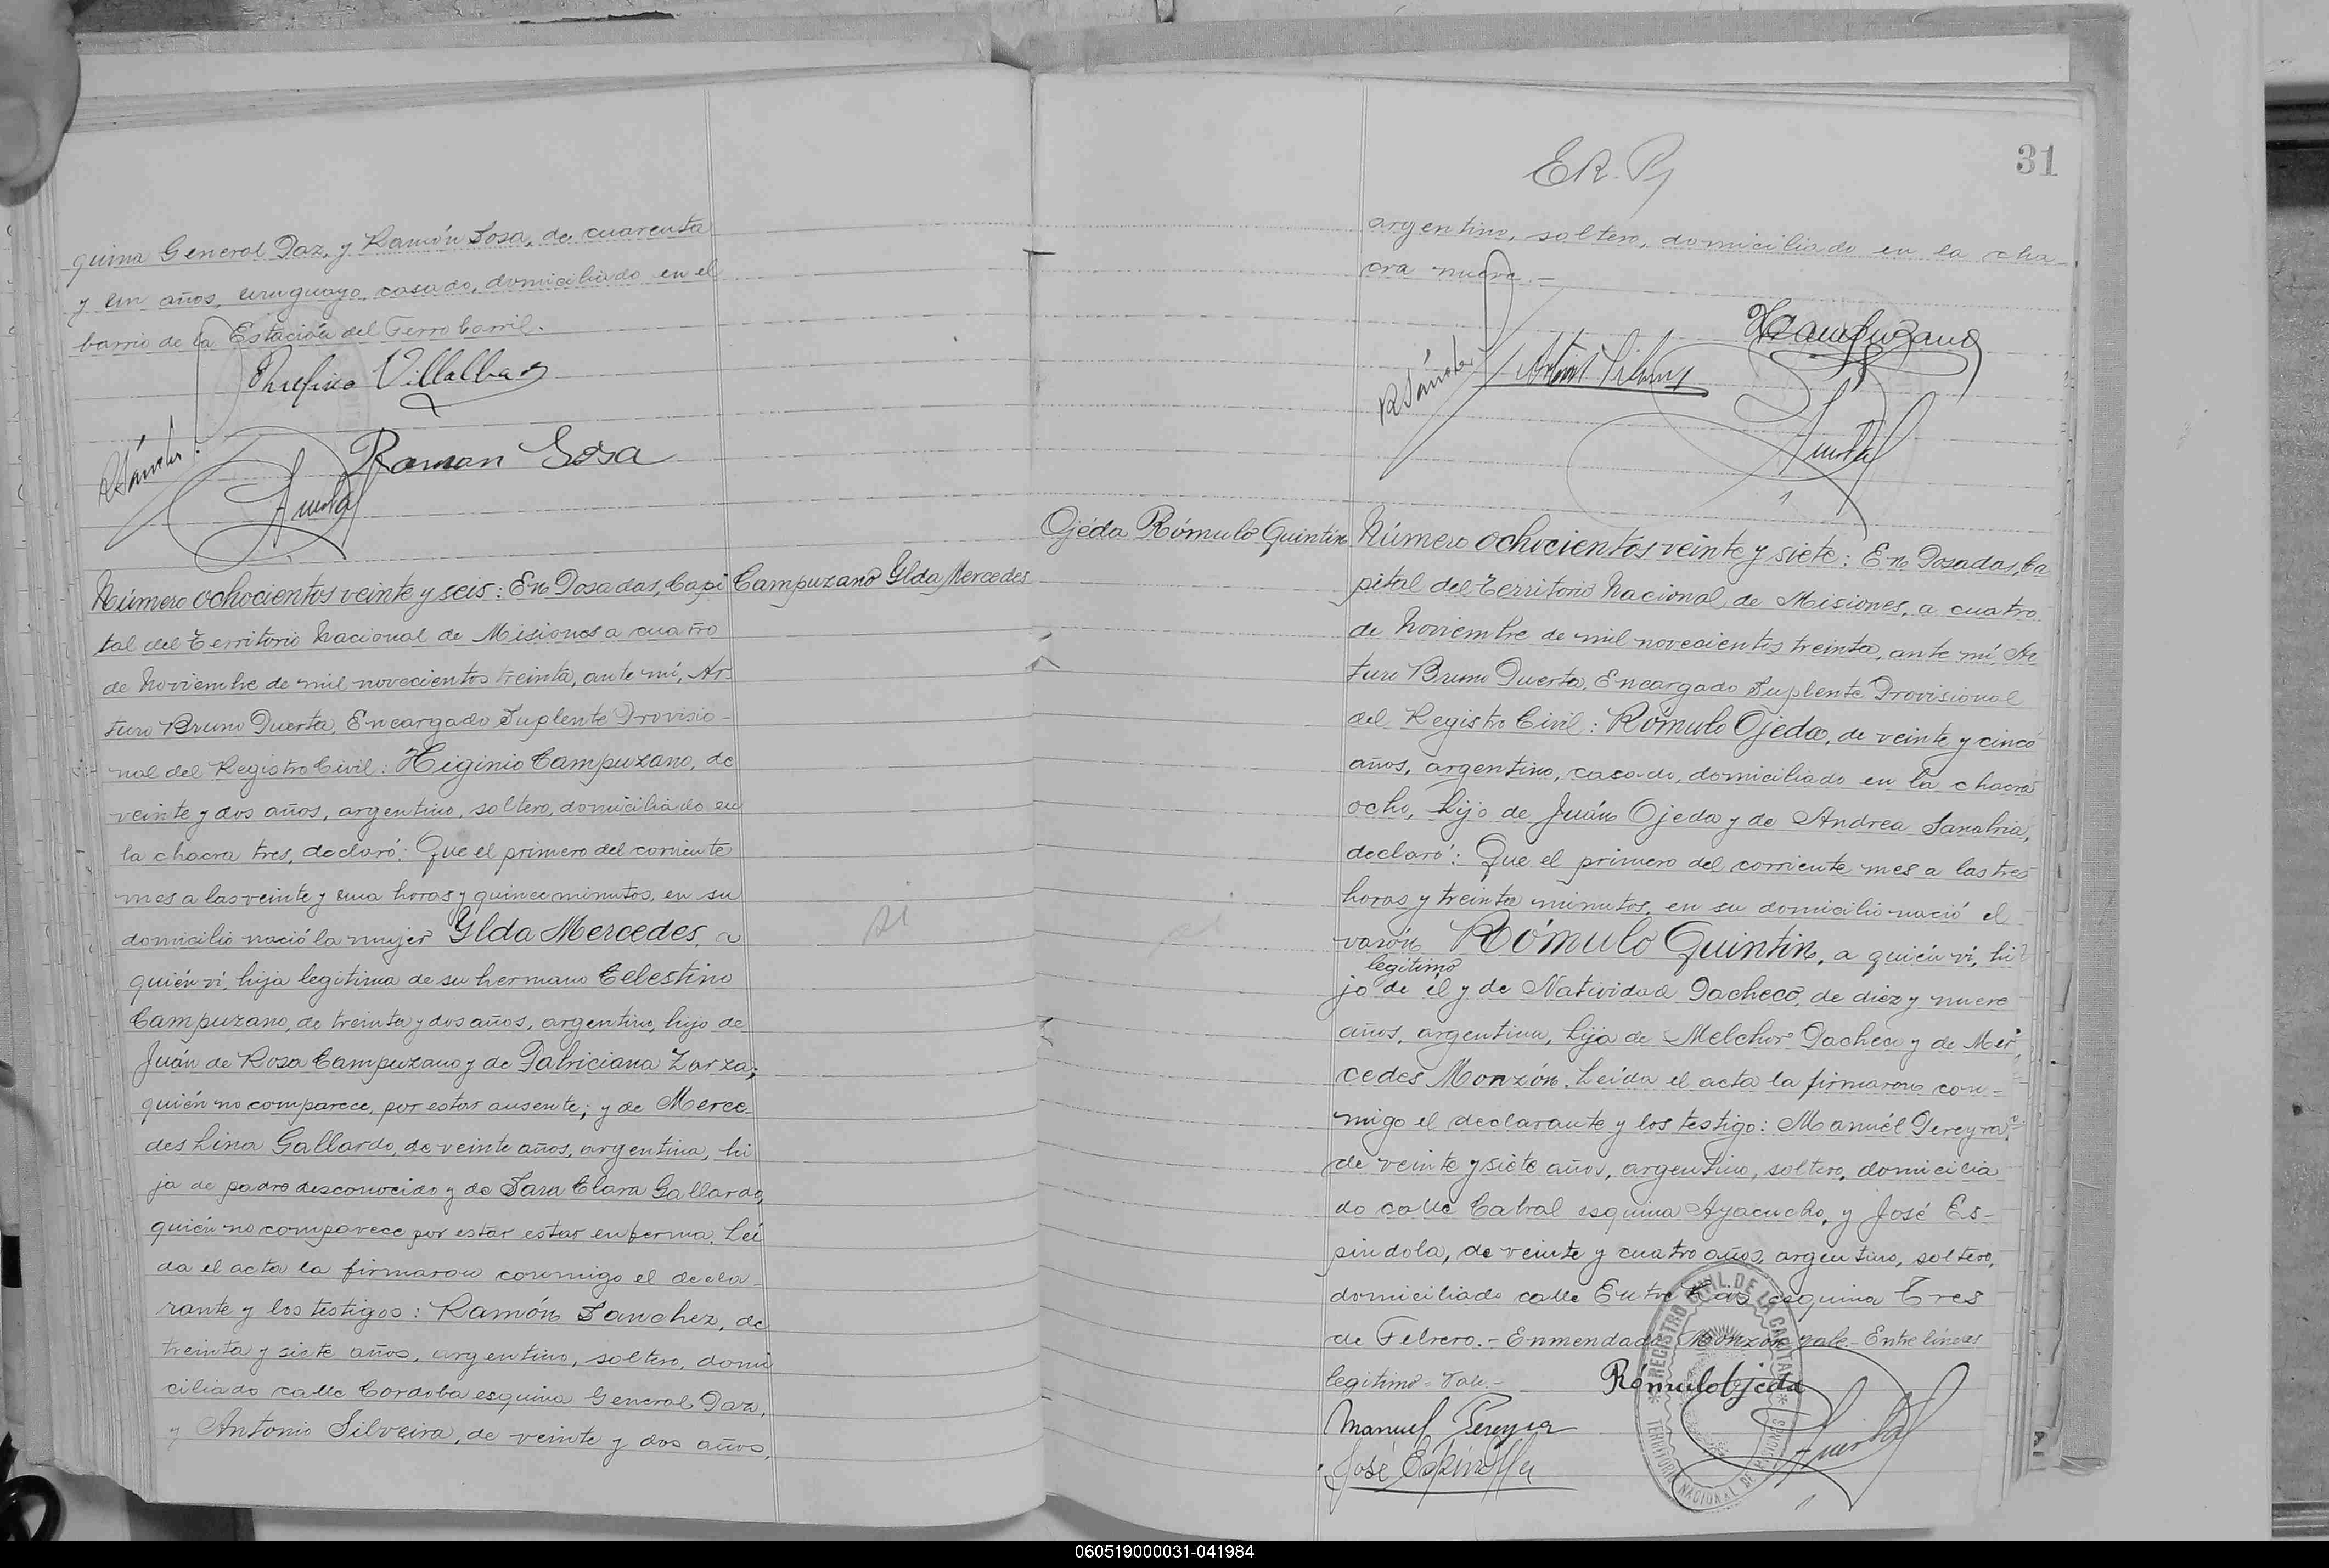 quina General Paz, y Ramón Sosa, de cuarenta
y un años, uruguayo, casado, domiciliado en el
barrio de la Estación del Ferro Carril.
Rufino Villalba
RSánchez
Ramon Sosa
Puerta
Número ochocientos veinte y seis: En Posadas, Capi
Campuzano Ylda Mercedes
tal del Territorio Nacional de Misiones a cuatro
de Noviembre de mil novecientos treinta, ante mí, Ar
turo Bruno Puerta, Encargado Suplente Provisio-
nal del Registro Civil: Higinio Campuzano, de
veinte y dos años, argentino, soltero, domiciliado en
la chacra tres, declaró: Que el primero del corriente
mes a las veinte y una horas y quince minutos, en su
domicilio nació la mujer Ylda Mercedes, a
quién ví, hija legitima de su hermano Celestino
Campuzano, de treinta y dos años, argentino, hijo de
Juán de Rosa Campuzano y de Patriciana Zarza;
quién no comparece, por estar ausente; y de Merce-
des Lina Gallardo, de veinte años, argentina, hi
ja de padre desconocido y de Sara Clara Gallardo,
quién no comparece por estar estar enferma. Leí
da el acta la firmaron conmigo el decla-
rante y los testigos: Ramón Sanchez, de
treinta y siete años, argentino, soltero, domi
ciliado calle Cordoba esquina General Paz,
y Antonio Silveira, de veinte y dos años,
31
argentino, soltero, domiciliado en la cha-
cra nueve.-
HCampuzano
RSánchez
Puerta
Ojeda Rómulo Quintin
Número ochocientos veinte y siete: En Posadas, Ca
pital del Territorio Nacional de Misiones, a cuatro
de Noviembre de mil novecientos treinta, ante mí, Ar
turo Bruno Puerta, Encargado Suplente Provisional
del Registro Civil: Rómulo Ojeda, de veinte y cinco
años, argentino, casado, domiciliado en la chacra
ocho, hijo de Juán Ojeda y de Andrea Sanabria,
declaró: Que el primero del corriente mes a las tres
horas y treinta minutos, en su domicilio nació el
varón Rómulo Quintin, a quién ví, hi
legitimo
jo de él y de Natividad Pacheco, de diez y nueve
años, argentina, hija de Melchor Pacheco y de Mer
cedes Monzón. Leída el acta la firmaron con-
migo el declarante y los testigo: Manuél Pereyra,
de veinte y siete años, argentino, soltero, domicilia
do calle Cabral esquina Ayacucho, y José Es-
píndola, de veinte y cuatro años, argentino, soltero,
domiciliado calle Entre Rios esquina Tres
de Febrero.- Enmendado Monzón vale- Entre líneas
legitimo- Vale.-
Rómulo Ojeda
Manuel Pereyra
José Espíndola
Puerta
REGISTRO CIVIL DE LA CAPITAL
TERRITORIO NACIONAL DE MISIONES
060519000031-041984